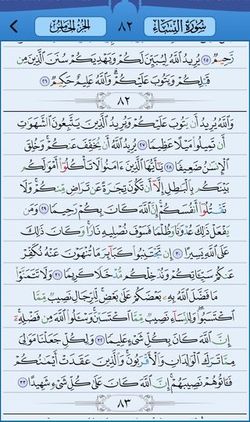 سُورَةُ النِّسَاءِ ٨٢ الجُزْءُ الخَامِسُ
رَّحِيمٌ ٢٥ يُرِيدُ ٱللَّهُ لِيُبَيِّنَ لَكُمْ وَيَهْدِيَكُمْ سُنَنَ ٱلَّذِينَ مِن
قَبْلِكُمْ وَيَتُوبَ عَلَيْكُمْ وَٱللَّهُ عَلِيمٌ حَكِيمٌ ٢٦
٨٢
وَٱللَّهُ يُرِيدُ أَن يَتُوبَ عَلَيْكُمْ وَيُرِيدُ ٱلَّذِينَ يَتَّبِعُونَ ٱلشَّهَوَٰتِ
أَن تَمِيلُوا۟ مَيْلًا عَظِيمًا ٢٧ يُرِيدُ ٱللَّهُ أَن يُخَفِّفَ عَنكُمْ وَخُلِقَ
ٱلْإِنسَٰنُ ضَعِيفًا ٢٨ يَٰٓأَيُّهَا ٱلَّذِينَ ءَامَنُوا۟ لَا تَأْكُلُوٓا۟ أَمْوَٰلَكُم
بَيْنَكُم بِٱلْبَٰطِلِ إِلَّآ أَن تَكُونَ تِجَٰرَةً عَن تَرَاضٍ مِّنكُمْ وَلَا
تَقْتُلُوٓا۟ أَنفُسَكُمْ إِنَّ ٱللَّهَ كَانَ بِكُمْ رَحِيمًا ٢٩ وَمَن
يَفْعَلْ ذَٰلِكَ عُدْوَٰنًا وَظُلْمًا فَسَوْفَ نُصْلِيهِ نَارًا وَكَانَ ذَٰلِكَ
عَلَى ٱللَّهِ يَسِيرًا ٣٠ إِن تَجْتَنِبُوا۟ كَبَآئِرَ مَا تُنْهَوْنَ عَنْهُ نُكَفِّرْ
عَنكُمْ سَيِّـَٔاتِكُمْ وَنُدْخِلْكُم مُّدْخَلًا كَرِيمًا ٣١ وَلَا تَتَمَنَّوْا۟
مَا فَضَّلَ ٱللَّهُ بِهِۦ بَعْضَكُمْ عَلَىٰ بَعْضٍ لِّلرِّجَالِ نَصِيبٌ مِّمَّا
ٱكْتَسَبُوا۟ وَلِلنِّسَآءِ نَصِيبٌ مِّمَّا ٱكْتَسَبْنَ وَسْـَٔلُوا۟ ٱللَّهَ مِن فَضْلِهِۦٓ
إِنَّ ٱللَّهَ كَانَ بِكُلِّ شَىْءٍ عَلِيمًا ٣٢ وَلِكُلٍّ جَعَلْنَا مَوَٰلِىَ
مِمَّا تَرَكَ ٱلْوَٰلِدَانِ وَٱلْأَقْرَبُونَ وَٱلَّذِينَ عَقَدَتْ أَيْمَٰنُكُمْ
فَـَٔاتُوهُمْ نَصِيبَهُمْ إِنَّ ٱللَّهَ كَانَ عَلَىٰ كُلِّ شَىْءٍ شَهِيدًا ٣٣
٨٣